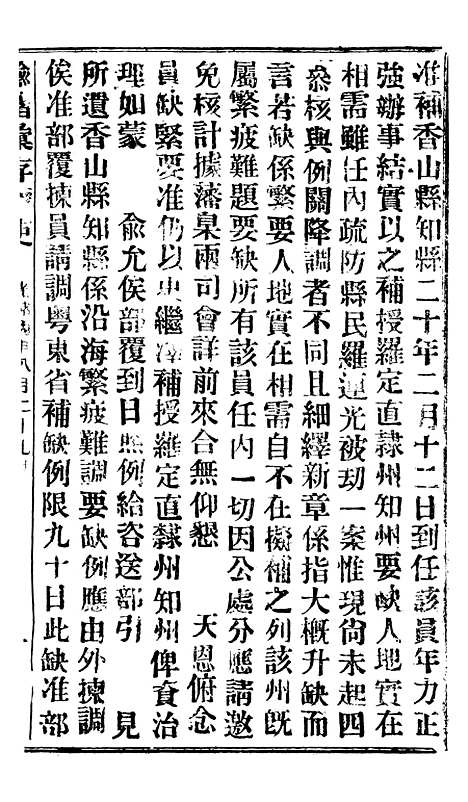 准補香山縣知縣二十年二月十二日到任該員年力正
強辦事結實以之補授羅定直隸州知州要缺人地實在
相需雖任內疏防縣民羅連光被刧一案惟現尙未起四
叅核與例關降調者不同且細繹新章係指大槪升缺而
言若缺係繁要人地實在相需自不在擬補之列該州旣
屬繁疲難題要缺所有該員任內一切因公處分應請邀
免核計據藩臬兩司會詳前來合無仰懇　天恩俯念
員缺緊要准仍以史繼澤補授羅定直隸州知州俾資治
理如蒙　俞允俟部覆到日照例給咨送部引　見
所遺香山縣知縣係沿海繁疲難調要缺例應由外揀調
俟准部覆揀員請調粵東省補缺例限九十日此缺准部
諭摺彙存
八月二十九